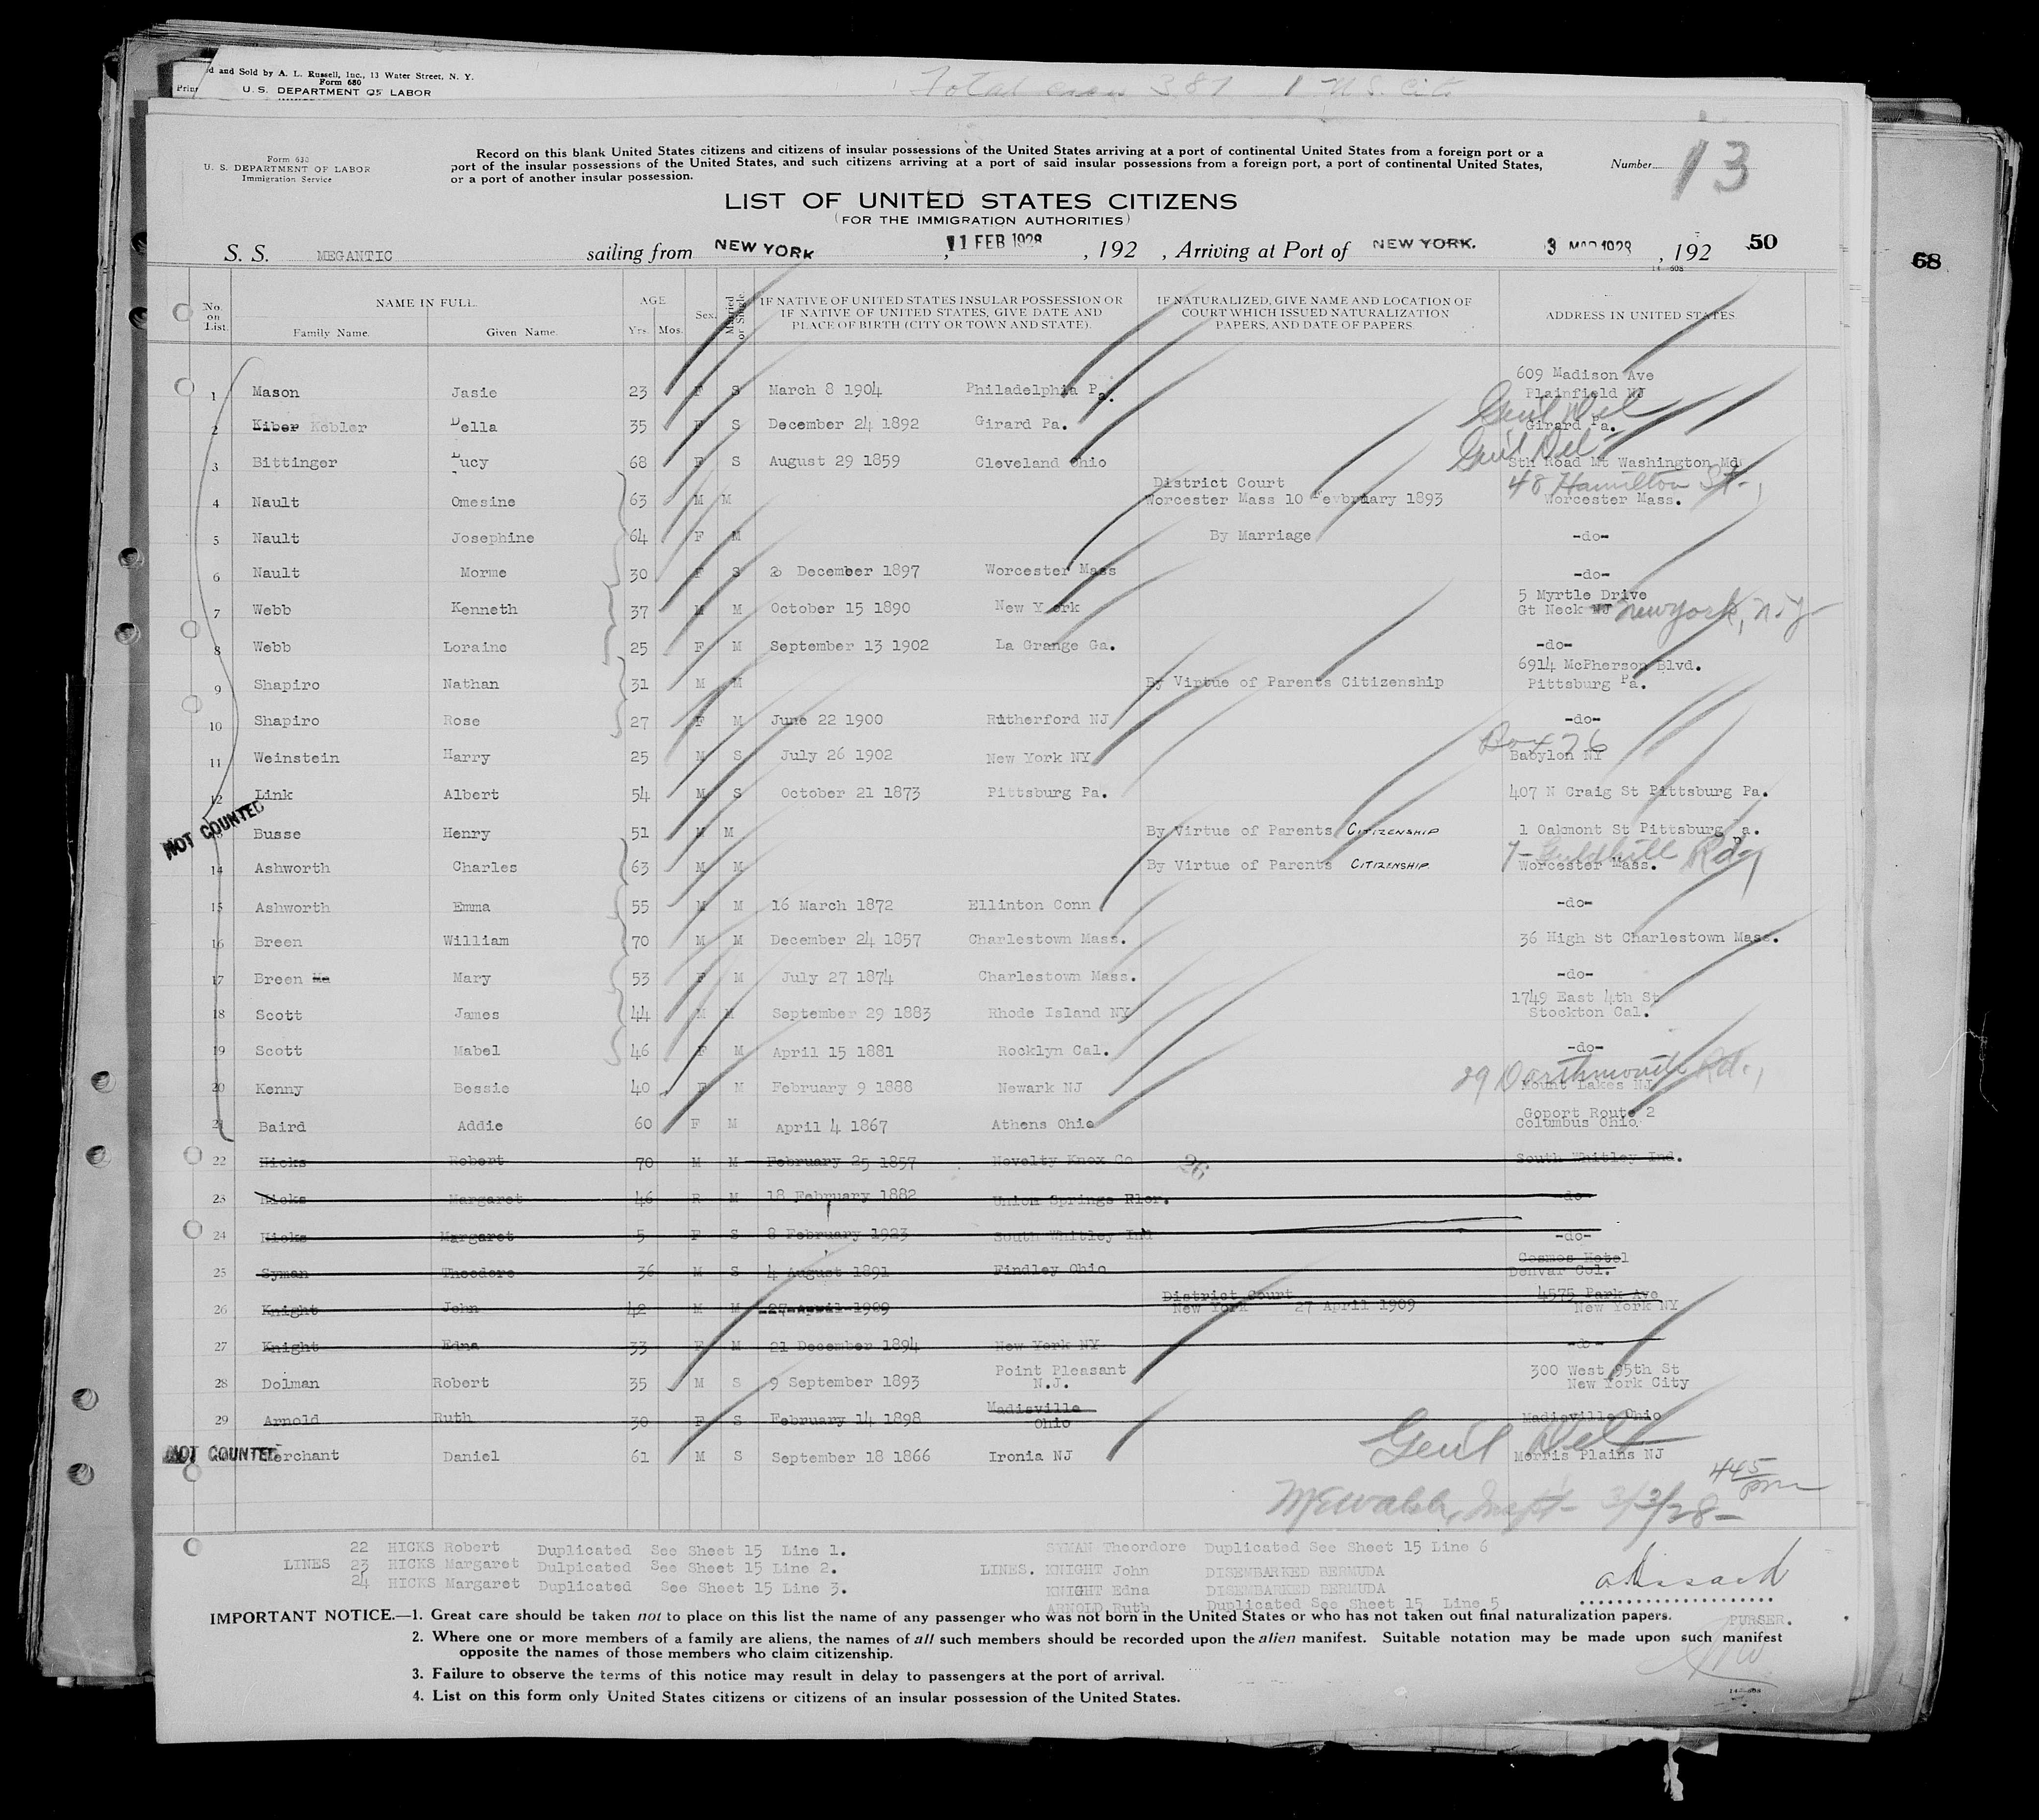 d and Sold by A. L. Russell, Inc., 13 Water Street, N. Y.
Form 680
U. S. DEPARTMENT OF LABOR
Total crew 387 1 U.S. Cit
Form 630
U. S. DEPARTMENT OF LABOR
Immigration Service
Record on this blank United States citizens and citizens of insular possessions of the United States arriving at a port of continental United States from a foreign port or a
port of the insular possessions of the United States, and such citizens arriving at a port of said insular possessions from a foreign port, a port of continental United States,
or a port of another insular possession.
Number 13
LIST OF UNITED STATES CITIZENS
(FOR THE IMMIGRATION AUTHORITIES)
S. S. MEGANTIC sailing from NEW YORK, 11 FEB 1928, 192 , Arriving at Port of NEW YORK. 3 MAR 1928, 192 50
68
No. on List. NAME IN FULL. Family Name. Given Name. AGE Yrs. Mos. Sex. Married or Single. IF NATIVE OF UNITED STATES INSULAR POSSESSION OR IF NATIVE OF UNITED STATES, GIVE DATE AND PLACE OF BIRTH (CITY OR TOWN AND STATE). IF NATURALIZED, GIVE NAME AND LOCATION OF COURT WHICH ISSUED NATURALIZATION PAPERS, AND DATE OF PAPERS ADDRESS IN UNITED STATES
1 Mason Jasie 23 F S March 8 1904 Philadelphia Pa. 609 Madison Ave Plainfield NJ
2 Kiber Kebler Della 35 F S December 24 1892 Girard Pa. Gen'l Del Girard Pa.
3 Bittinger Lucy 68 F S August 29 1859 Cleveland Ohio Gen'l Del Sth Road Mt Washington Md
4 Nault Omesine 63 M M District Court Worcester Mass 10 Fevbruary 1893 48 Hamilton St., Worcester Mass.
5 Nault Josephine 64 F M By Marriage -do-
6 Nault Morme 30 F S 2 December 1897 Worcester Mass -do-
7 Webb Kenneth 37 M M October 15 1890 New York 5 Myrtle Drive Gt Neck NJ New York, N.Y
8 Webb Loraine 25 F M September 13 1902 La Grange Ga. -do-
9 Shapiro Nathan 31 M M By Virtue of Parents Citizenship 6914 McPherson Blvd. Pittsburg Pa.
10 Shapiro Rose 27 F M June 22 1900 Rutherford NJ -do-
11 Weinstein Harry 25 M S July 26 1902 New York NY Box 76 Babylon NY
12 Link Albert 54 M S October 21 1873 Pittsburg Pa. 407 N Craig St Pittsburg Pa.
NOT COUNTED
13 Busse Henry 51 M M By Virtue of Parents CITIZENSHIP 1 Oakmont St Pittsburg Pa.
14 Ashworth Charles 63 M M By Virtue of Parents CITIZENSHIP 7- Rd., Worcester Mass.
15 Ashworth Emma 55 M M 16 March 1872 Ellinton Conn -do-
16 Breen William 70 M M December 24 1857 Charlestown Mass. 36 High St Charlestown Mass.
17 Breen Ma Mary 53 F M July 27 1874 Charlestown Mass. -do-
18 Scott James 44 M M September 29 1883 Rhode Island NY 1749 East 4th St Stockton Cal.
19 Scott Mabel 46 F M April 15 1881 Rocklyn Cal. -do-
20 Kenny Bessie 40 F M February 9 1888 Newark NJ 29 Dartmouth Rd., Mount Lakes NJ
21 Baird Addie 60 F M April 4 1867 Athens Ohio Goport Route 2 Columbus Ohio.
22 Hicks Robert 70 M M February 25 1857 Novelty Knox Co 26 South Whitley Ind.
23 Hicks Margaret 46 F M 18 February 1882 Union Springs Rlor. -do-
24 Hicks Margaret 5 F S 8 February 1923 South Whitley Ind -do-
25 Syman Theodore 36 M S 4 August 1891 Findley Ohio Cosmos Hotel Denvar Col.
26 Knight John 42 M M 27 April 1909 District Court New York 27 April 1909 4575 Park Ave New York NY
27 Knight Edna 33 F M 21 December 1894 New York NY -do-
28 Dolman Robert 35 M S 9 September 1893 Point Pleasant N.J. 300 West 95th St New York City
29 Arnold Ruth 30 F S February 14 1898 Madisville Ohio Madisville Ohio
NOT COUNTED Merchant Daniel 61 M S September 18 1866 Ironia NJ Gen'l Del Morris Plains NJ
445 pm
McWalsh, Insp't 3/3/28-
LINES 22 HICKS Robert Duplicated See Sheet 15 Line 1.
23 HICKS Margaret Dulpicated See Sheet 15 Line 2.
24 HICKS Margaret Duplicated See Sheet 15 Line 3.
SYMAN Theordore Duplicated See Sheet 15 Line 6
LINES. KNIGHT John DISEMBARKED BERMUDA
KNIGHT Edna DISEMBARKED BERMUDA
ARNOLD Ruth Duplicated See Sheet 15 Line 5
PURSER.
IMPORTANT NOTICE.—1. Great care should be taken not to place on this list the name of any passenger who was not born in the United States or who has not taken out final naturalization papers.
2. Where one or more members of a family are aliens, the names of all such members should be recorded upon the alien manifest. Suitable notation may be made upon such manifest
opposite the names of those members who claim citizenship.
3. Failure to observe the terms of this notice may result in delay to passengers at the port of arrival.
4. List on this form only United States citizens or citizens of an insular possession of the United States.